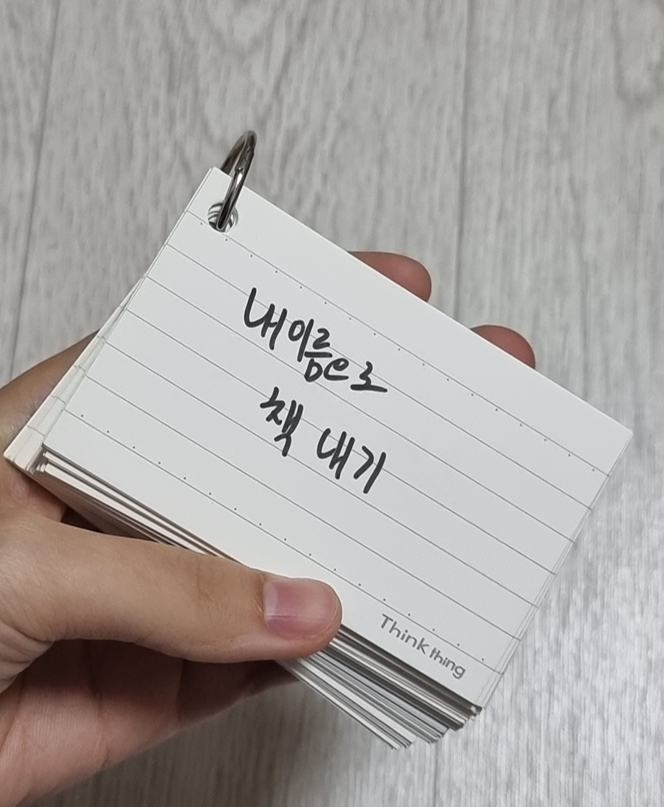 내 이름으로
책 내기
Think thing